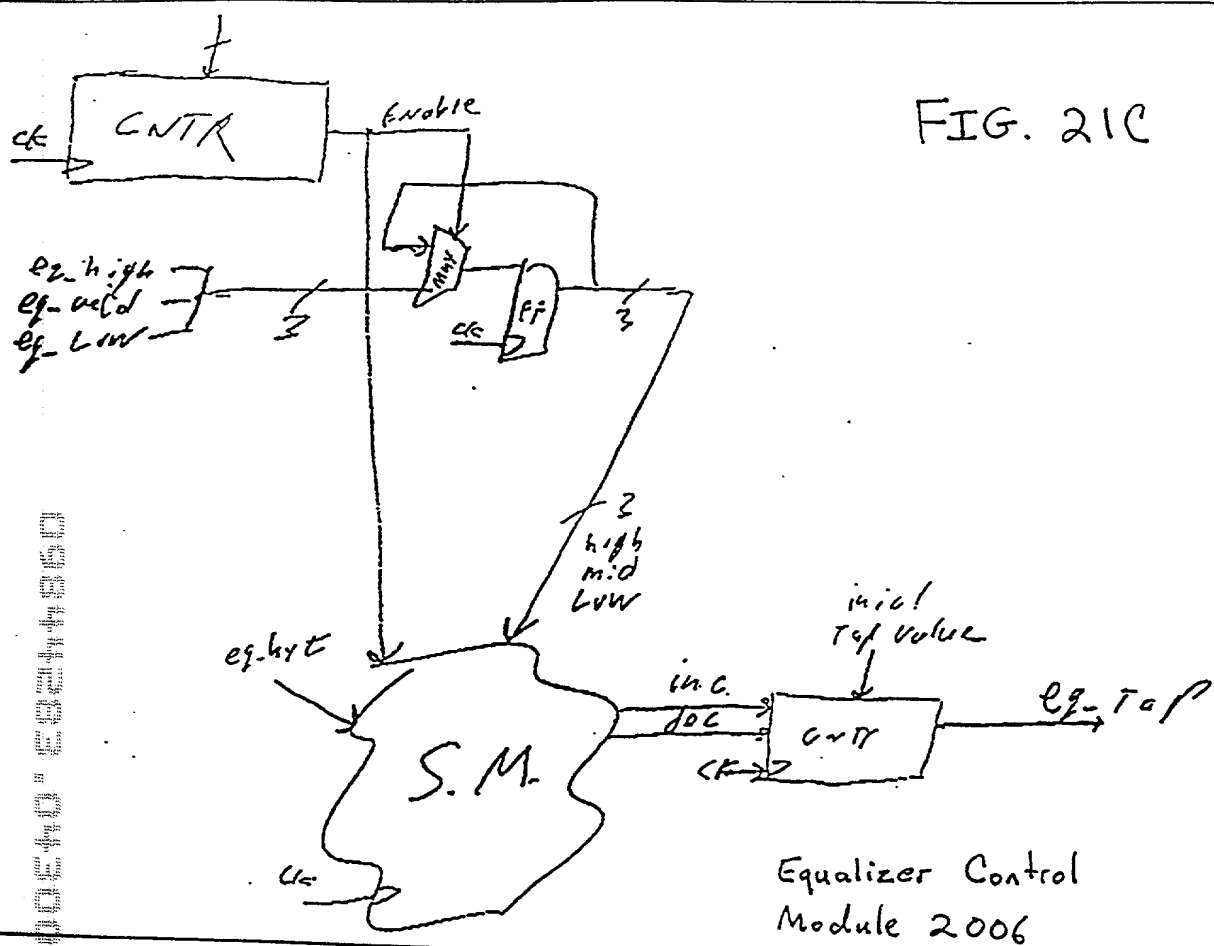 FIG. 21C
CNTR
ck
Enable
eq_high
eq_valid
eq_Low
3
mux
FF
ck
3
3
high
mid
Low
eq_hyt
S.M.
ck
inc.
dec
inicl
Tap value
CNTR
CK
eq_Tap
Equalizer Control
Module 2006